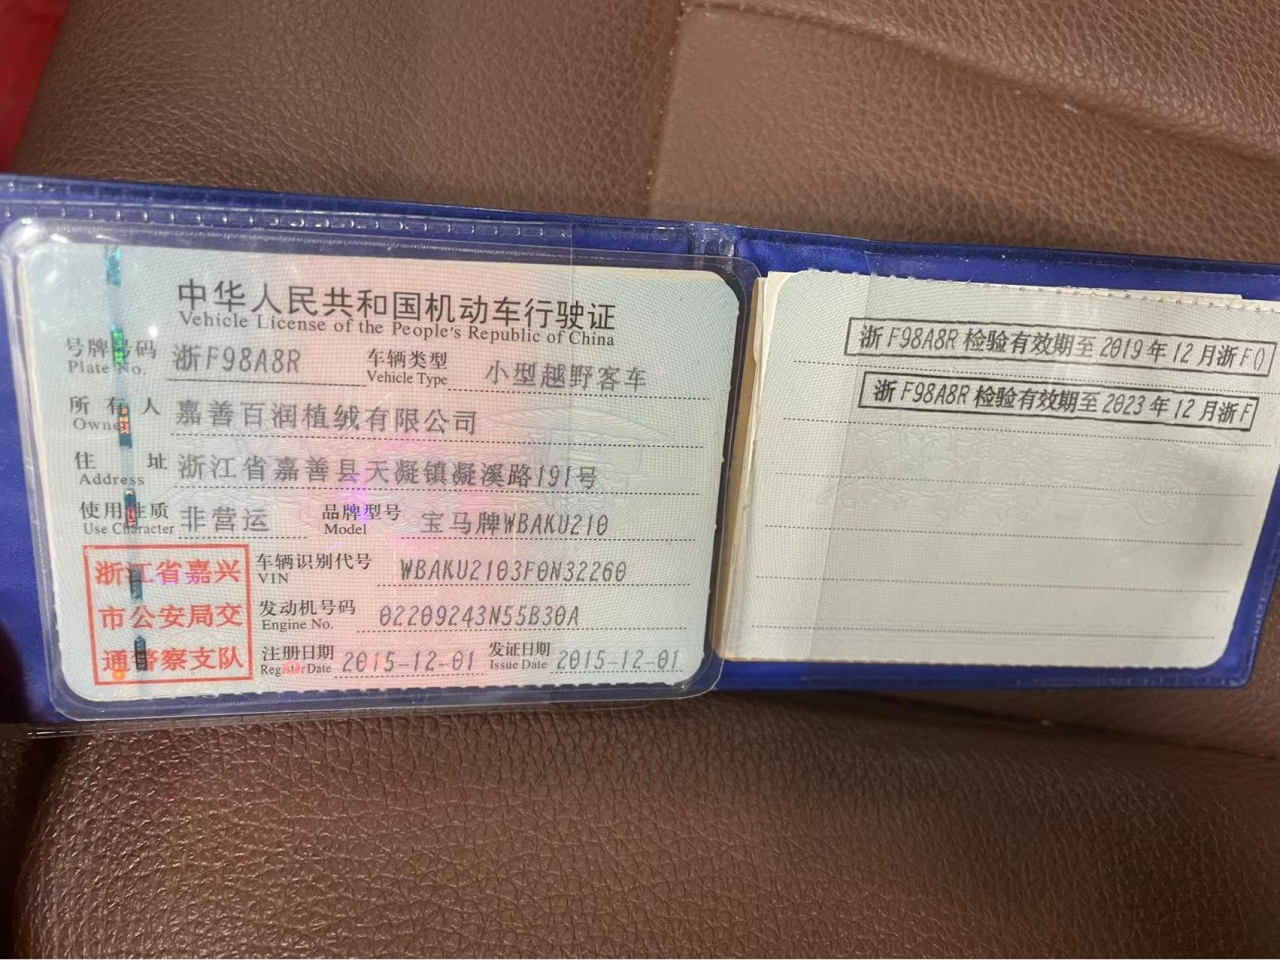 中华人民共和国机动车行驶证
Vehicle License of the People's Republic of China
号牌号码 浙F98A8R 车辆类型 小型越野客车
Plate No. Vehicle Type
所有人 嘉善百润植绒有限公司
Owner
住址 浙江省嘉善县天凝镇凝溪路191号
Address
使用性质 非营运 品牌型号 宝马牌WBAKU210
Use Character Model
浙江省嘉兴
市公安局交
通警察支队
车辆识别代号 WBAKU2103F0N32260
VIN
发动机号码 02209243N55B30A
Engine No.
注册日期 2015-12-01 发证日期 2015-12-01
Register Date Issue Date
浙F98A8R检验有效期至2019年12月浙F()
浙F98A8R检验有效期至2023年12月浙F